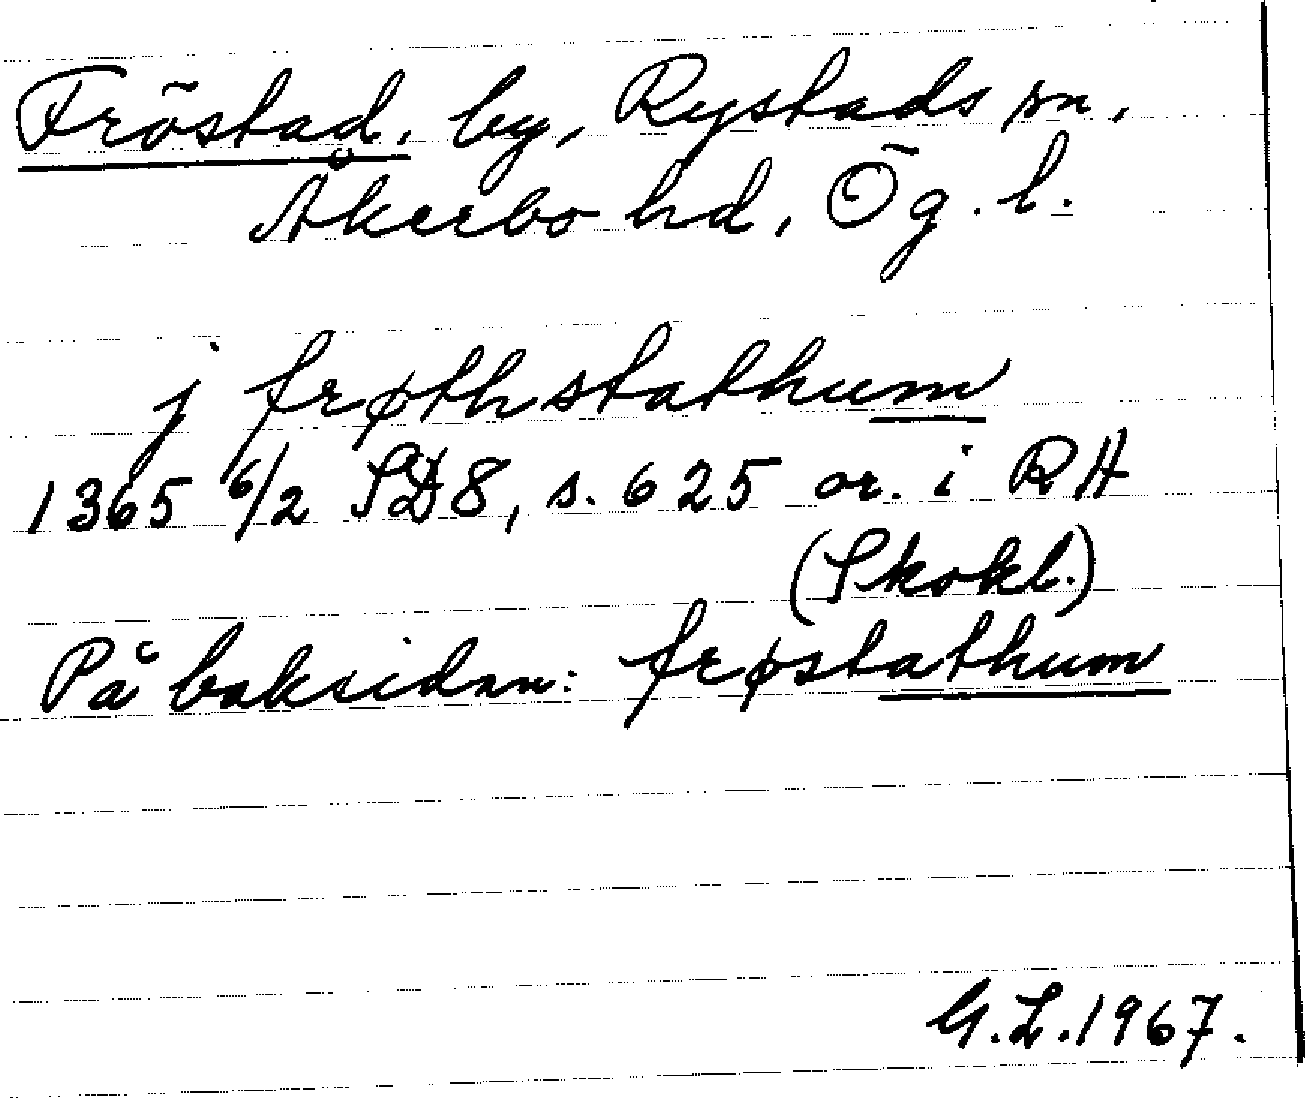 Fröstad, by, Rystads sn,
Åkerbo hd, Ög. l.
j frøthstathum
1365 6/2 SD8, s. 625 or. i RA
(Skokl.)
På baksidan: frøstathum
G.L.1967.